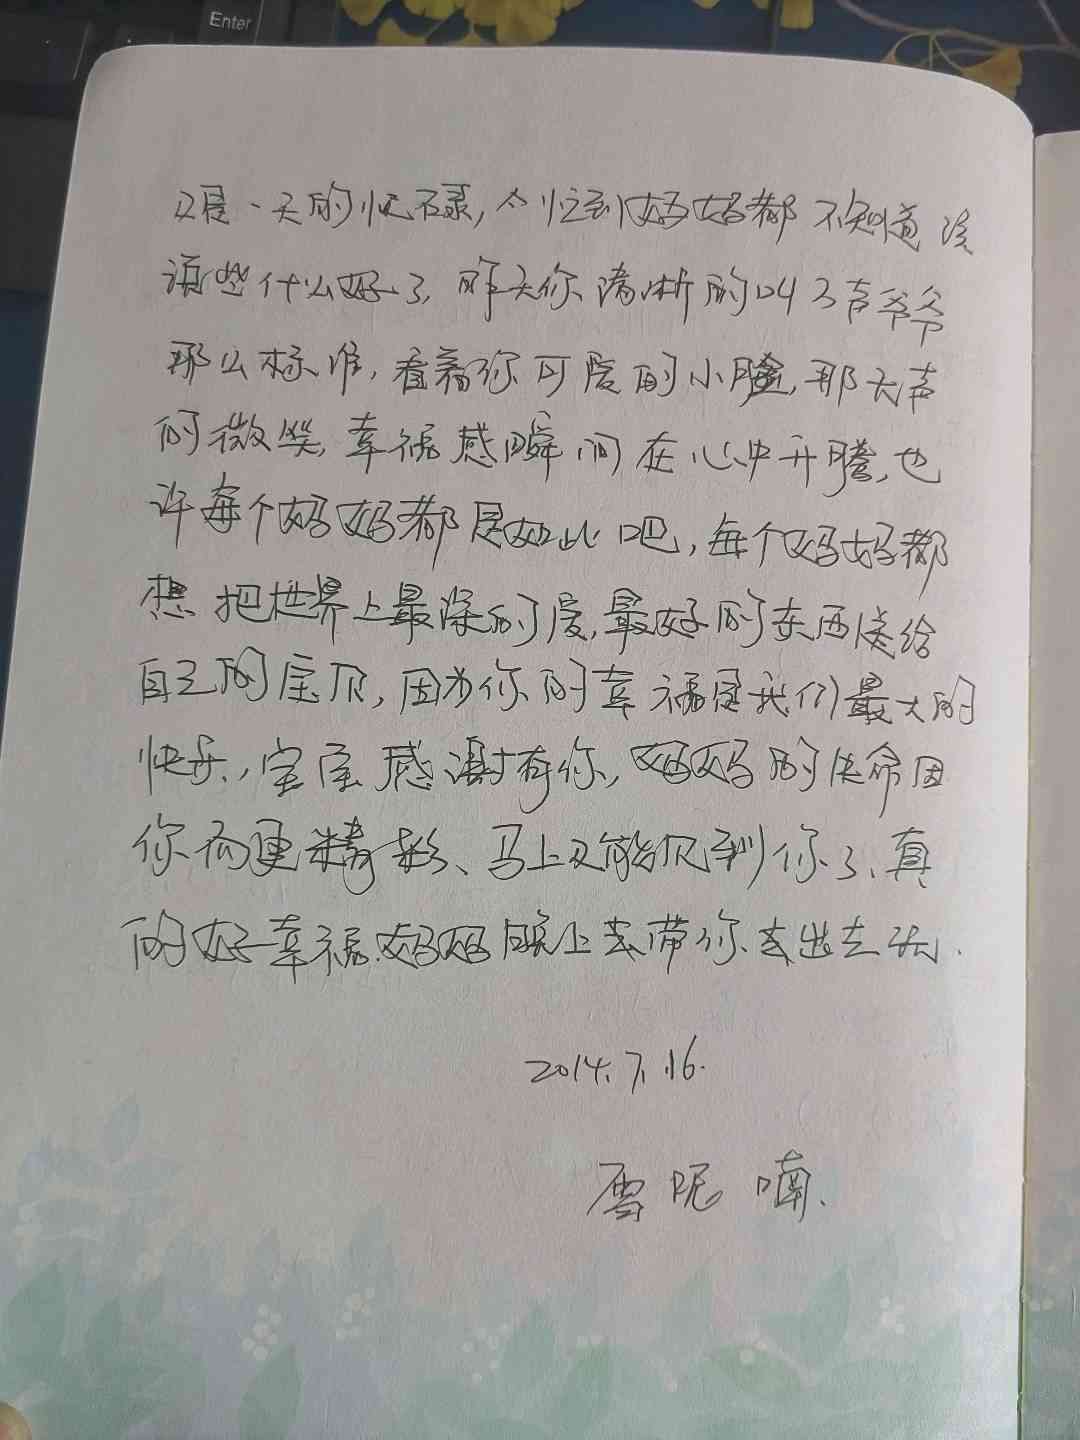 Enter
又是一天的忙碌，令忙到妈妈都不知道该
说些什么好了，昨天你清晰的叫了声爷爷
那么标准，看着你可爱的小脸，那无声
的微笑，幸福感瞬间在心中升腾，也
许每个妈妈都是如此吧，每个妈妈都
想把世界上最深的爱，最好的东西送给
自己的宝贝，因为你的幸福是我们最大的
快乐，宝宝感谢有你，妈妈的生命因
你而更精彩、马上又能见到你了、真
的好幸福.妈妈晚上去带你去出去玩.
2014.7.16.
雪呢喃.